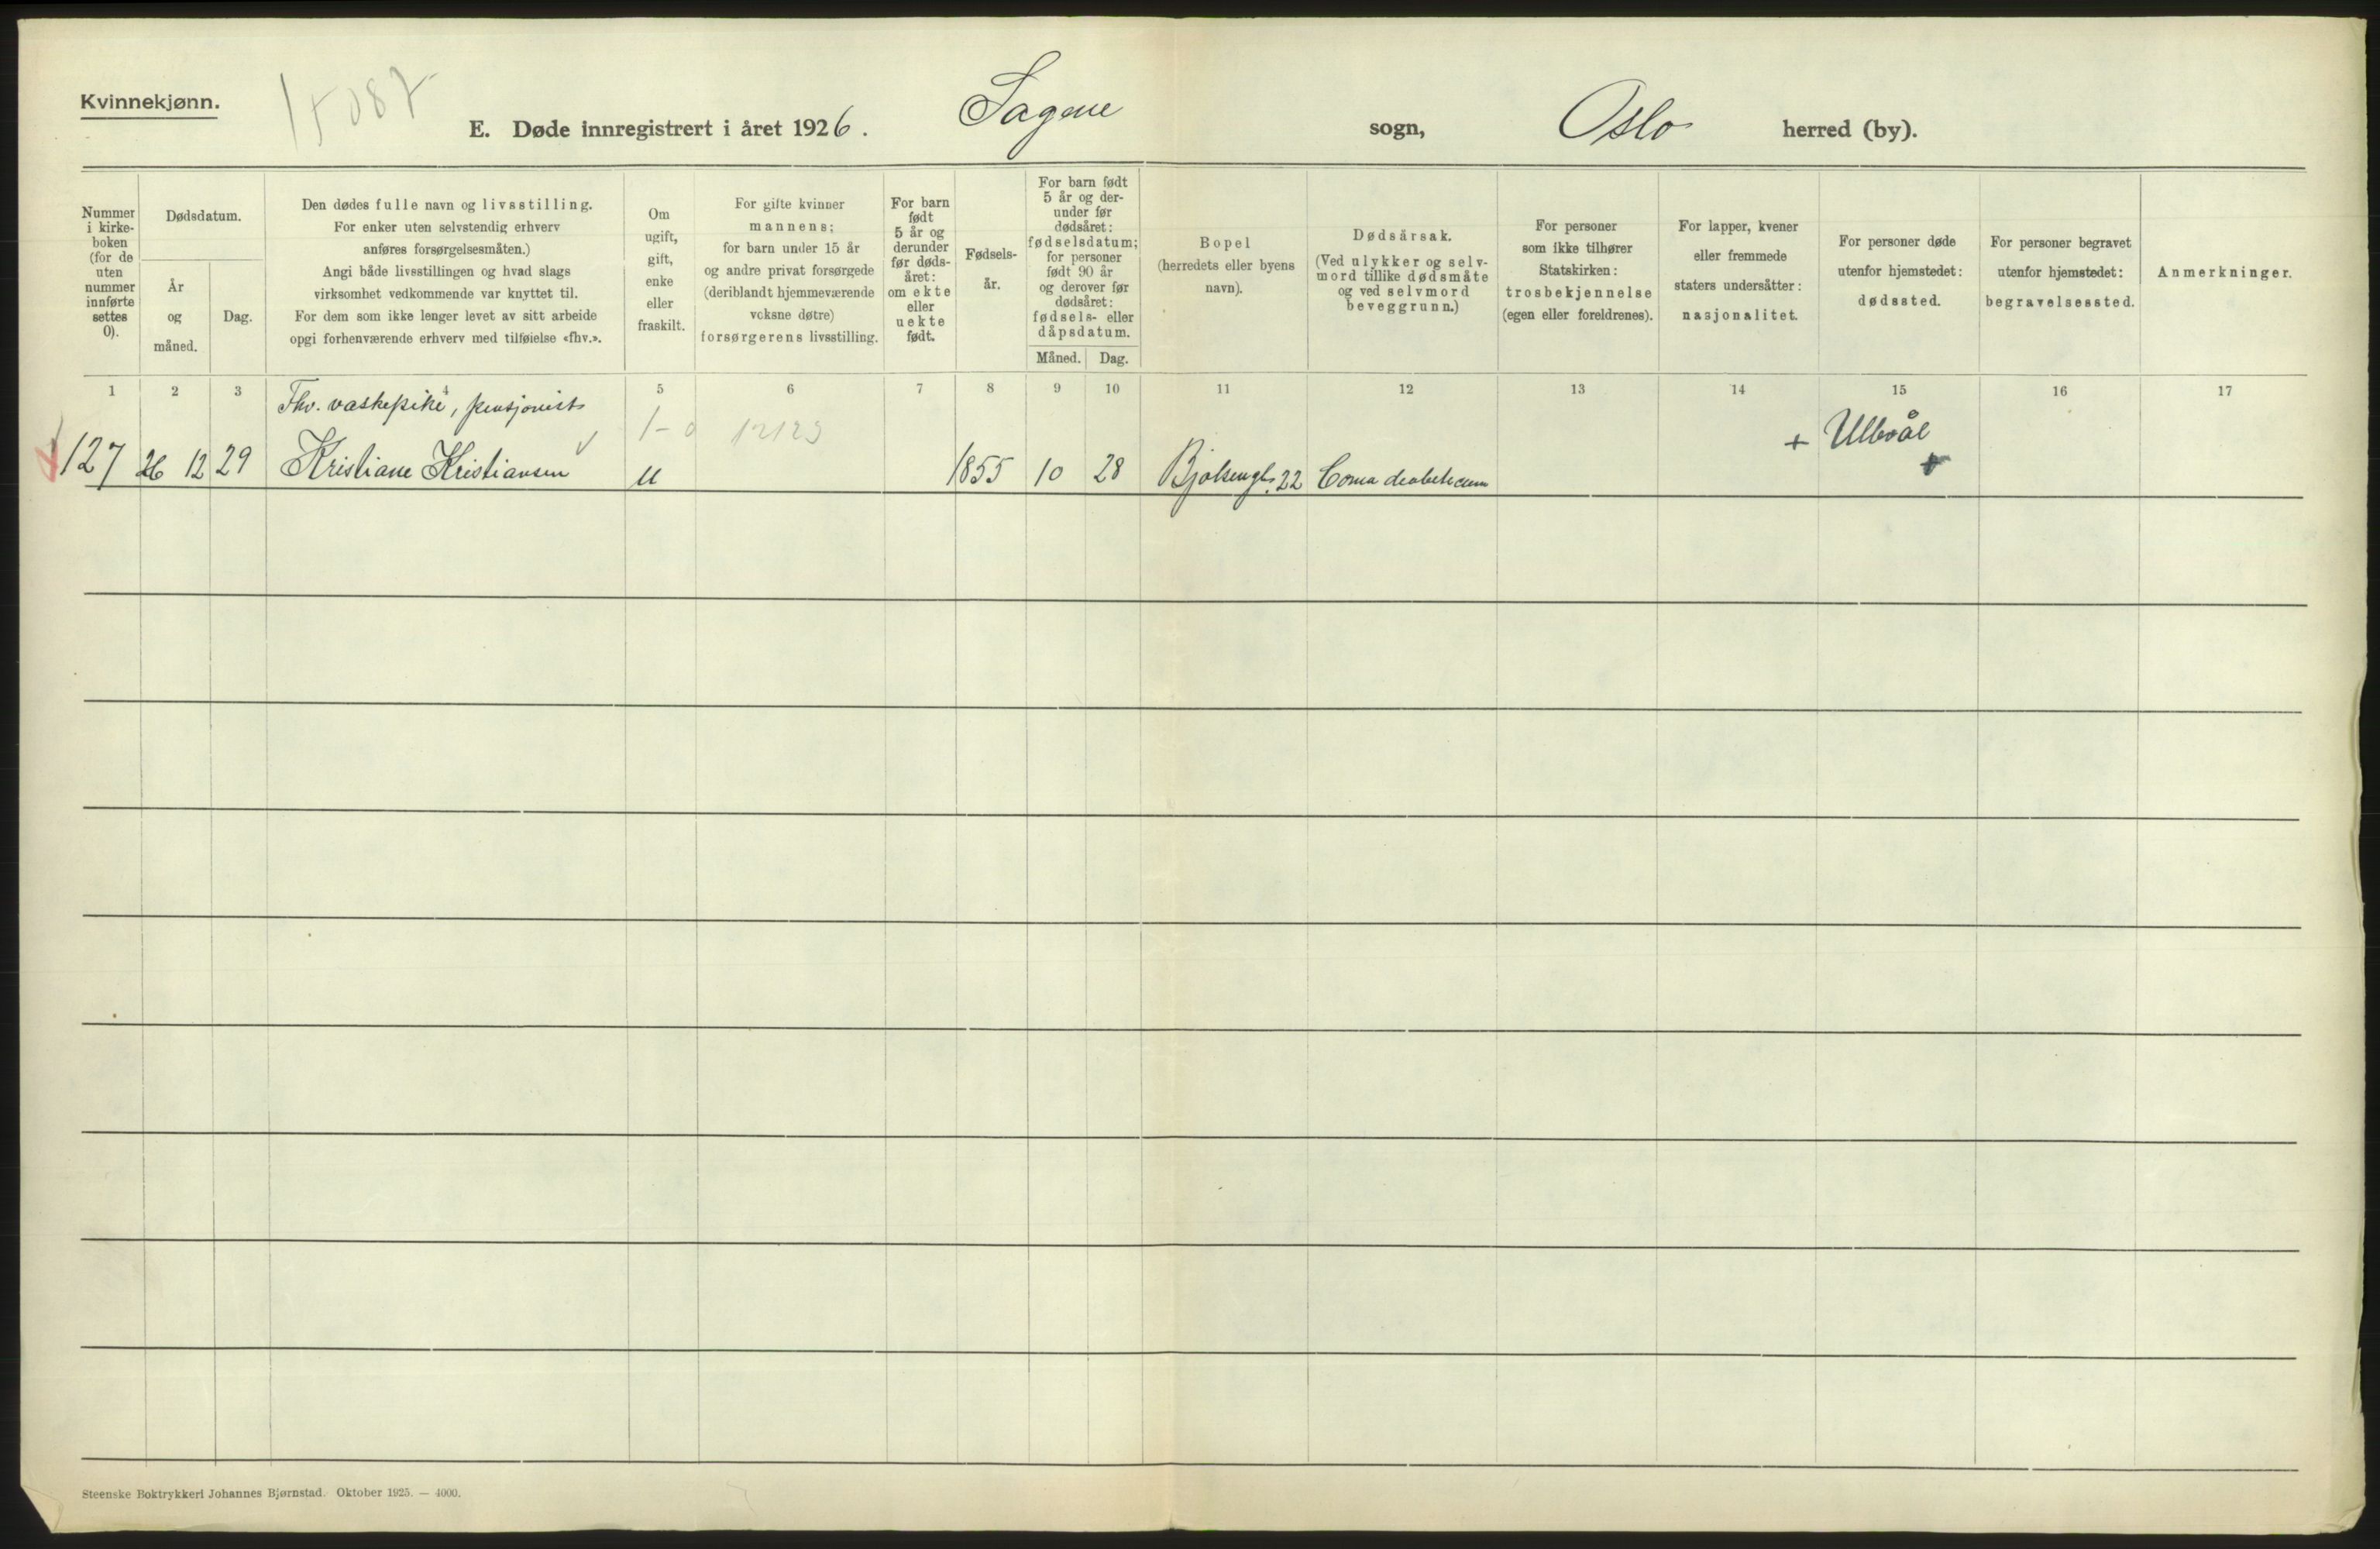 Kvinnekjønn.
E. Døde innregistrert i året 1926. Sagene sogn, Oslo herred (by).
Nummer i kirke-boken (for de uten nummer innførte settes 0).
Dødsdatum.
År og måned.
Dag.
Den dødes fulle navn og livsstilling.
For enker uten selvstendig erhverv
anføres forsørgelsesmåten.)
Angi både livsstillingen og hvad slags
virksomhet vedkommende var knyttet til.
For dem som ikke lenger levet av sitt arbeide
opgi forhenværende erhverv med tilføielse «fhv.».
Om
ugift,
gift,
enke
eller
fraskilt.
For gifte kvinner
mannens;
for barn under 15 år
og andre privat forsørgede
(deriblandt hjemmeværende
voksne døtre)
forsørgerens livsstilling.
For barn
født
5 år og
derunder
før døds-
året:
om ekte
eller
uekte
født.
Fødsels-
år.
For barn født
5 år og der-
under før
dødsåret:
fødselsdatum;
for personer
født 90 år
og derover før
dødsåret:
fødsels- eller
dåpsdatum.
Måned. Dag.
Bopel
(herredets eller byens
navn).
Dødsårsak.
(Ved ulykker og selv-
mord tillike dødsmåte
og ved selvmord
beveggrunn.)
For personer
som ikke tilhører
Statskirken:
trosbekjennelse
(egen eller foreldrenes).
For lapper, kvener
eller fremmede
staters undersåtter:
nasjonalitet.
For personer døde
utenfor hjemstedet:
dødssted.
For personer begravet
utenfor hjemstedet:
begravelsessted.
Anmerkninger.
1 2 3 4 5 6 7 8 9 10 11 12 13 14 15 16 17
Fhv. vaskepike, pensjonist 1-0 + Ullevål
127 26 12 29 Kristiane Kristiansen u 1855 10 28 Bjølsengt. 22 Coma diabeticum +
Steenske Boktrykkeri Johannes Bjørnstad. Oktober 1925. — 4000.